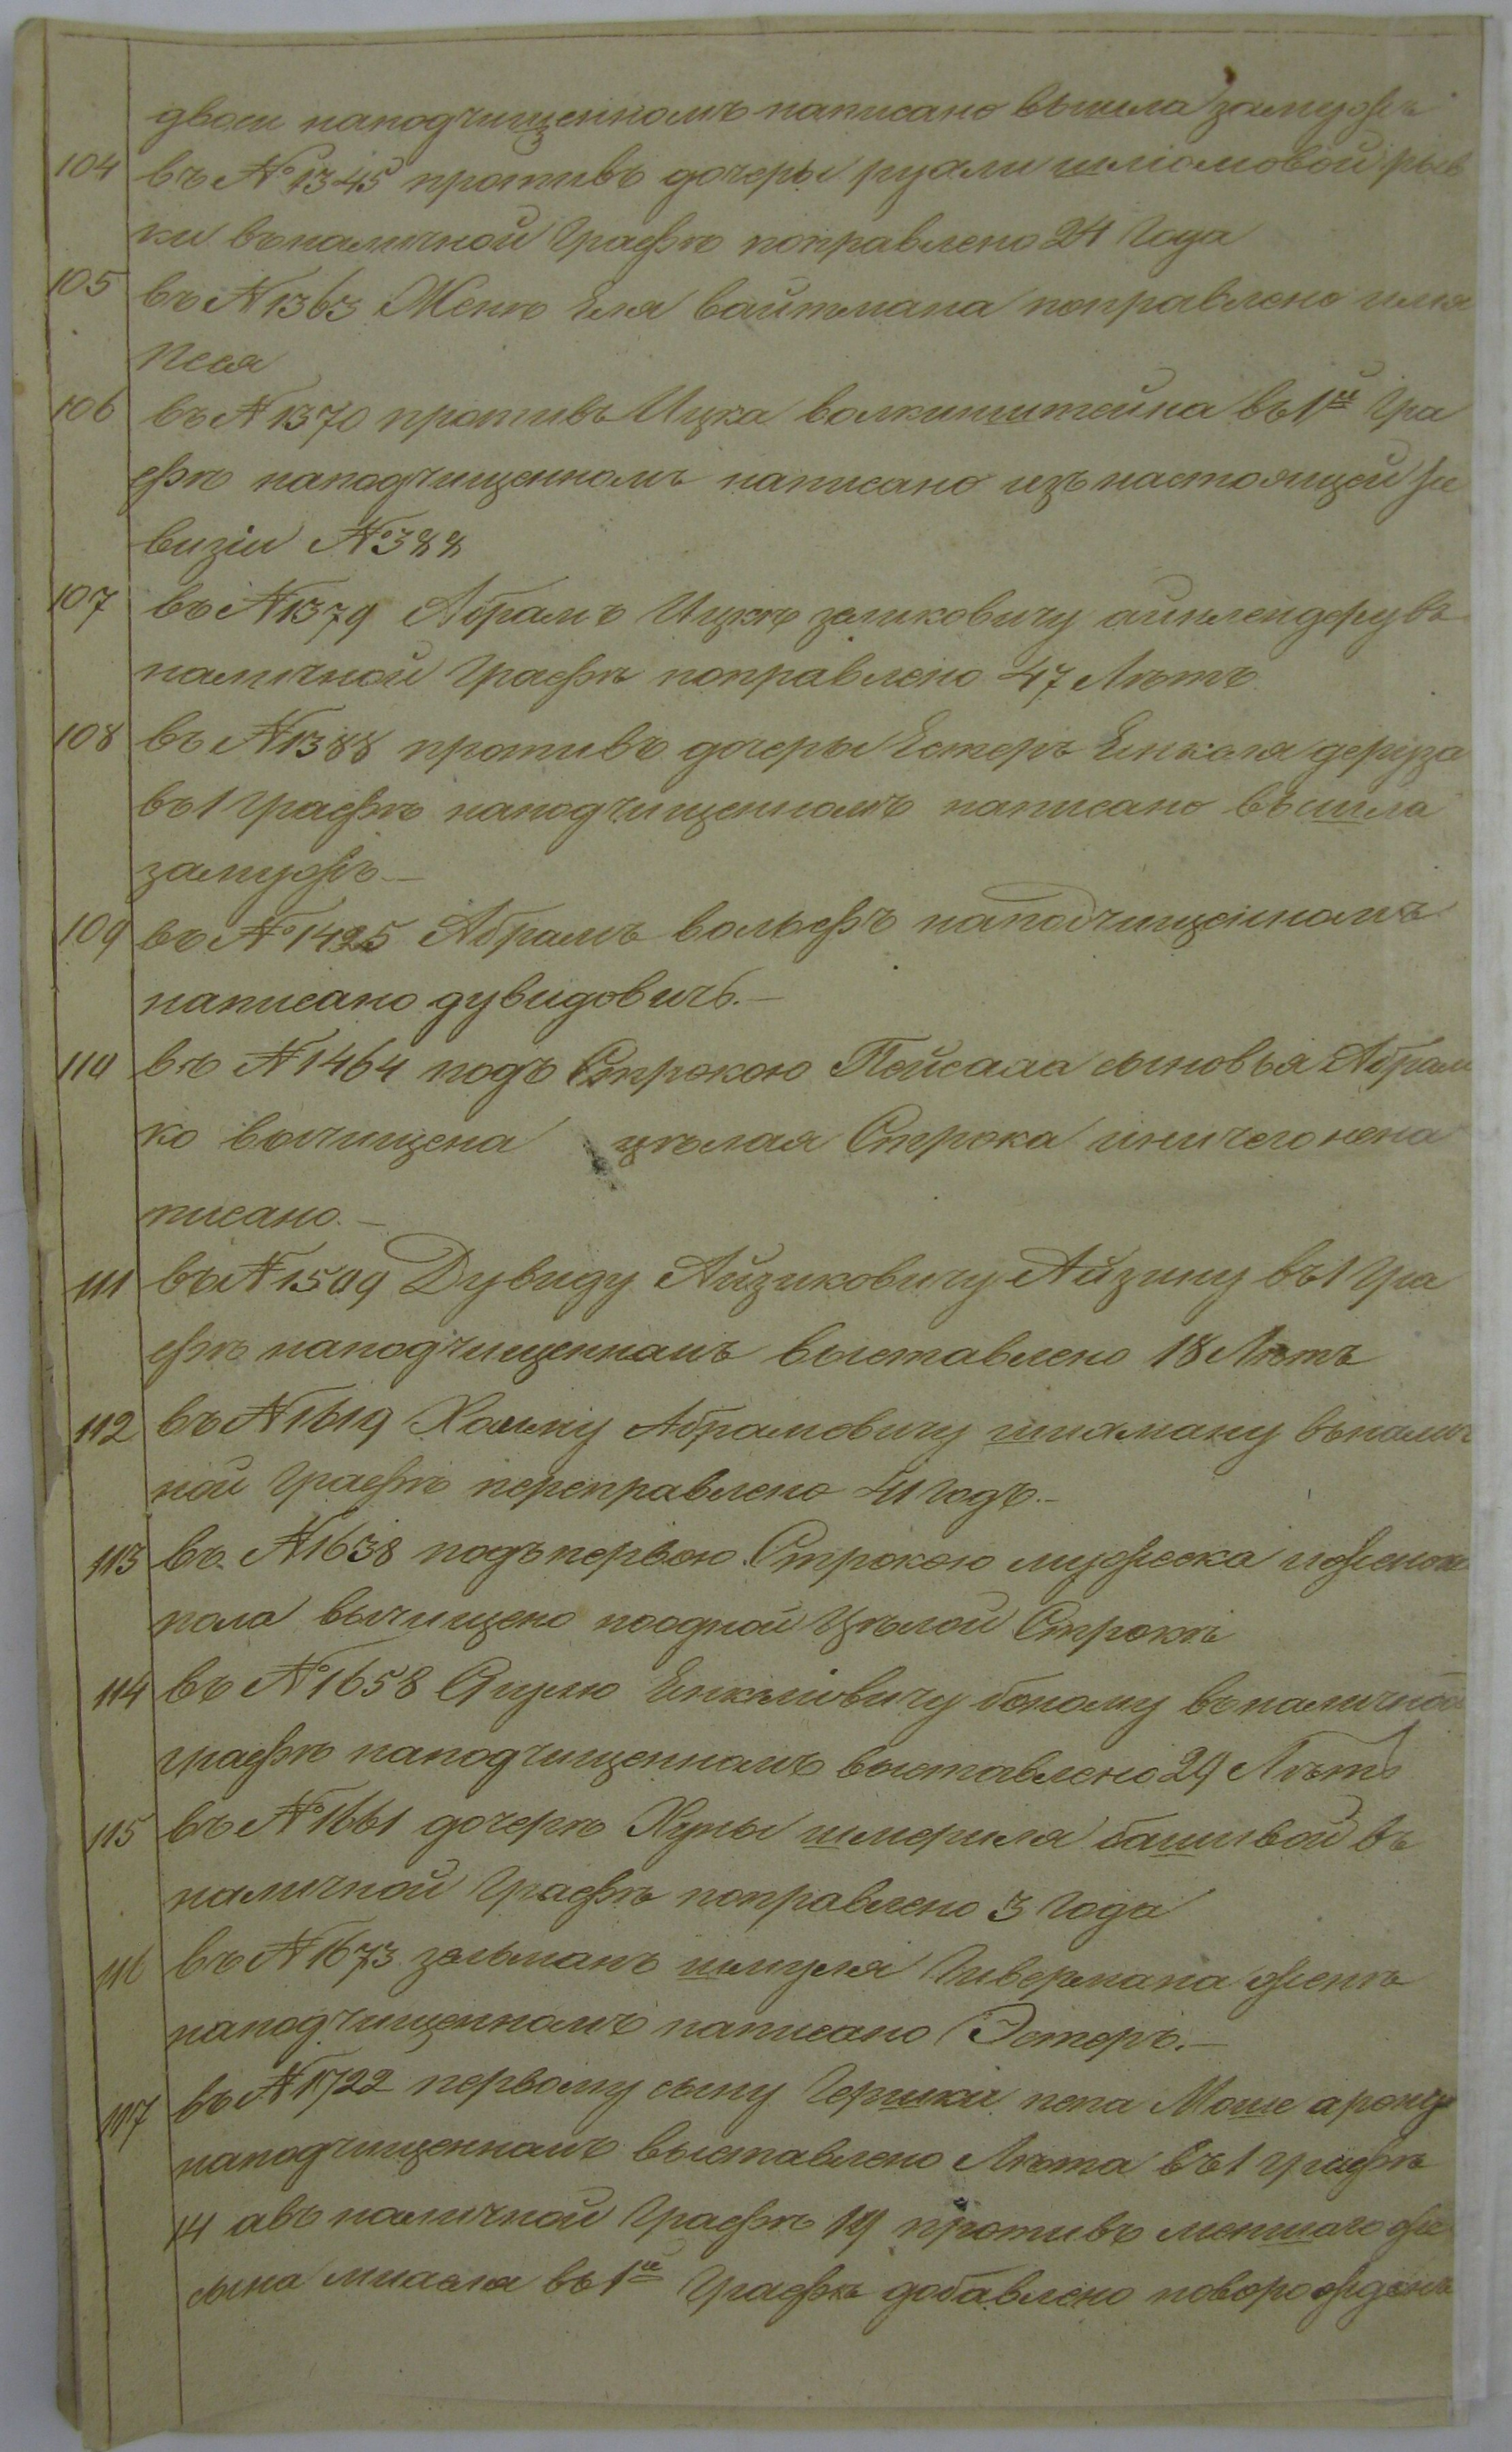 двои наподчищенномъ написано вышла замужъ
104 въ №1345 противъ дочеры рухли шліомовой рыв
ки въналичной Графѣ поправлено 24 Года
105 въ №1363 Женѣ Еля вайтмана поправлено имя
Песя
106 въ №1370 противъ Ицка волкинштейна въ 1й Гра
фѣ наподчищенномъ написано изъ настоящей ре
визіи №388
107 въ №1379 Абрамъ Ицкѣ зеликовичу айнлендеру въ
наличной Графѣ поправлено 47 Лѣтъ
108 въ №1388 противъ дочеры Естеръ Енкеля
въ 1 Графѣ наподчищенномъ написано вышла
замужъ.—
109 въ №1425 Абрамъ вольфъ наподчищенномъ
написано дувидовичъ.—
110 въ №1464 подъ Строкою Пейсаха сыновья Абрам
ко вычищена цѣлая Строка иничего нена
писано.—
111 въ №1509 Дувиду Айзиковичу Айзину въ 1 Гра
фѣ наподчищенномъ выставлено 18 Лѣтъ
112 въ №1619 Хаиму Абрамовичу въналич
ной Графѣ переправлено 41 годъ.—
113 въ №1638 подъ первою Строкою мужеска иженск
пола вычищено поодной Цѣлой Строкѣ
114 въ №1658 Енкелiовичу въналичной
графѣ наподчищенномъ выставлено 29 Лѣтъ
115 въ №1661 дочерѣ Хуны шмериля башивой въ
наличной Графѣ поправлено 3 Года
116 въ №1673 зельманъ шмуля Гивермана женѣ
наподчищенномъ написано Эстеръ.—
117 въ №1722 первому сыну Гершки пена Моше арону
наподчищенномъ выставлено Лѣта въ 1 графѣ
14 авъ наличной Графѣ 19 противъ меншаго же
сына въ 1й Графѣ добавлено новорожденъ